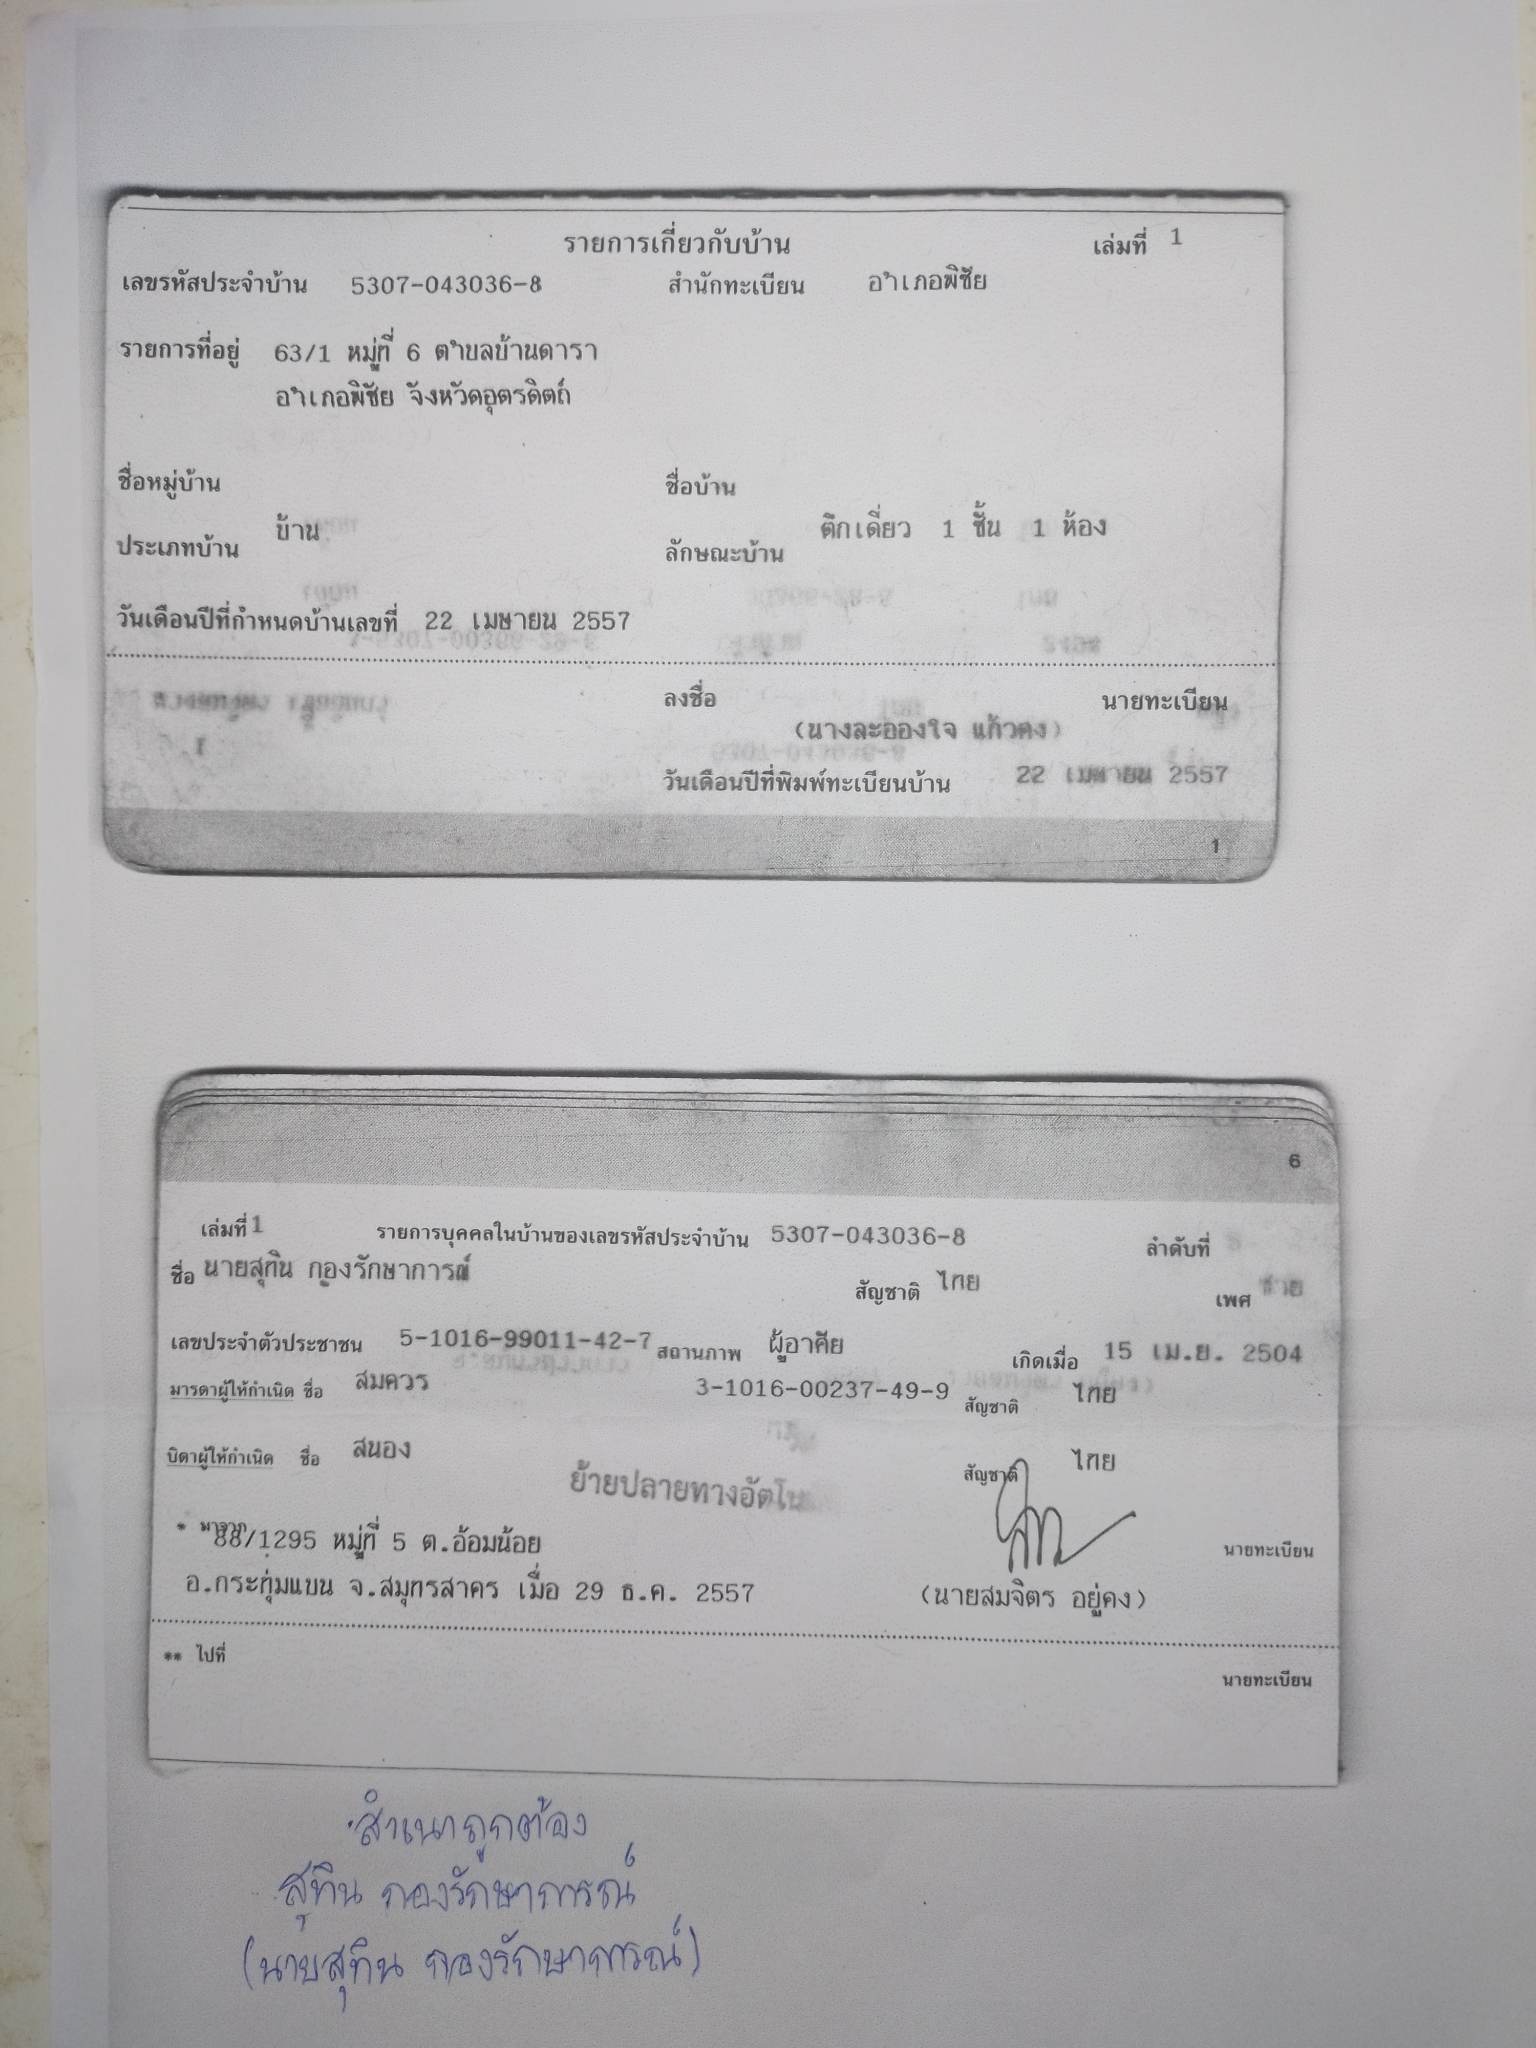 รายการเกี่ยวกับบ้าน เล่มที่ 1
เลขรหัสประจำบ้าน 5307-043036-8 สำนักทะเบียน อำเภอพิชัย
รายการที่อยู่ 63/1 หมู่ที่ 6 ตำบลบ้านดารา
อำเภอพิชัย จังหวัดอุตรดิตถ์
ชื่อหมู่บ้าน ชื่อบ้าน
ประเภทบ้าน บ้าน ลักษณะบ้าน ตึกเดี่ยว 1 ชั้น 1 ห้อง
วันเดือนปีที่กำหนดบ้านเลขที่ 22 เมษายน 2557
ลงชื่อ นายทะเบียน
(นางละอองใจ แก้วคง)
วันเดือนปีที่พิมพ์ทะเบียนบ้าน 22 เมษายน 2557
1
6
เล่มที่ 1 รายการบุคคลในบ้านของเลขรหัสประจำบ้าน 5307-043036-8 ลำดับที่
ชื่อ นายสุทิน กองรักษาการณ์ สัญชาติ ไทย เพศ ชาย
เลขประจำตัวประชาชน 5-1016-99011-42-7 สถานภาพ ผู้อาศัย เกิดเมื่อ 15 เม.ย. 2504
มารดาผู้ให้กำเนิด ชื่อ สมควร 3-1016-00237-49-9 สัญชาติ ไทย
บิดาผู้ให้กำเนิด ชื่อ สนอง สัญชาติ ไทย
ย้ายปลายทางอัตโน
* มาจาก 88/1295 หมู่ที่ 5 ต.อ้อมน้อย นายทะเบียน
อ.กระทุ่มแบน จ.สมุทรสาคร เมื่อ 29 ธ.ค. 2557 (นายสมจิตร อยู่คง)
** ไปที่
นายทะเบียน
สำเนาถูกต้อง
สุทิน กองรักษาการณ์
(นายสุทิน กองรักษาการณ์)